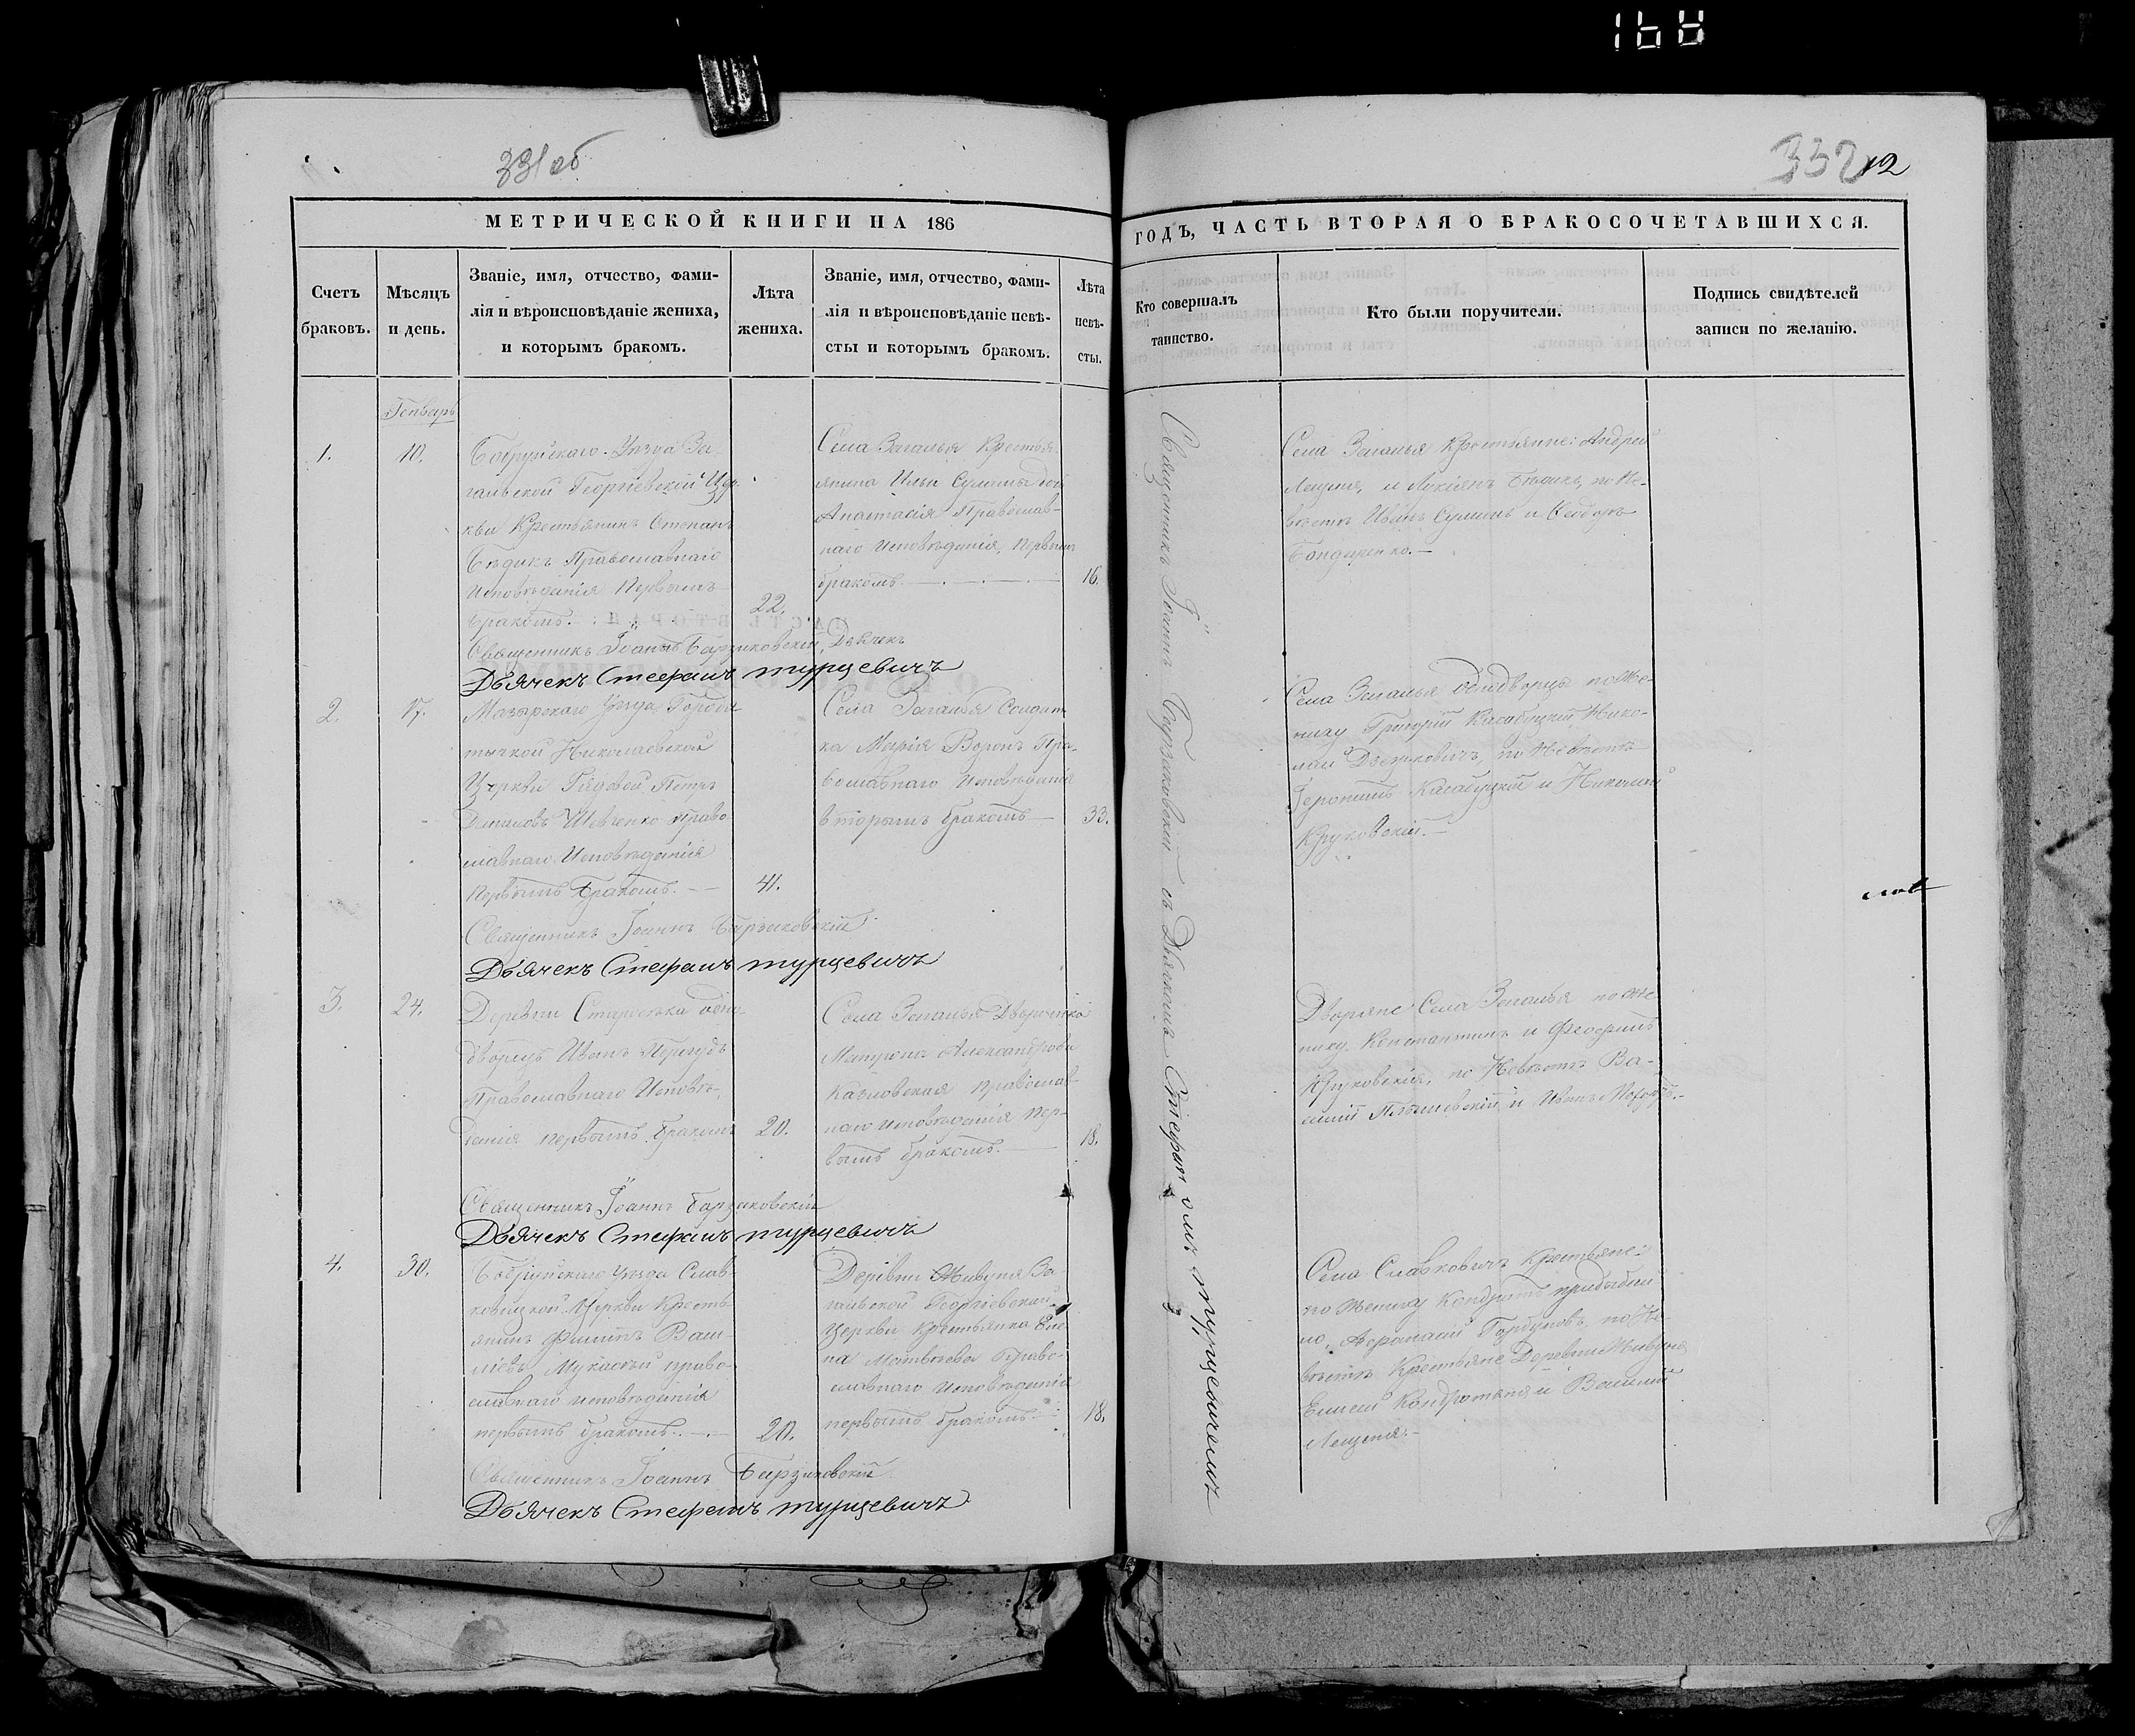 168
331 об
332 12
МЕТРИЧЕСКОЙ КНИГИ НА 186
ГОДЪ, ЧАСТЬ ВТОРАЯ О БРАКОСОЧЕТАВШИХСЯ.
Счетъ
браковъ.
Мѣсяцъ
и день.
Званіе, имя, отчество, фами-
лія и вѣроисповѣданіе жениха,
и которымъ бракомъ.
Лѣта
жениха.
Званіе, имя, отчество, фами-
лія и вѣроисповѣданіе невѣ-
сты и которымъ бракомъ.
Лѣта
невѣ-
сты.
Кто совершалъ
таинство.
Кто были поручители.
Подпись свидѣтелей
записи по желанію.
Генварь
1.
10.
Бобруйскаго Уѣзда За-
гальской Георгіевской Цер-
кви Крестьянинъ Степанъ
Бѣдикъ Православнаго
Исповѣданія Первымъ
бракомъ.
22.
Села Загалья Крестья-
янина Ильи Сулимы дочь
Анастасія Православ-
наго Исповѣданія, Первымъ
бракомъ.
16.
Села Загалья Крестьянне: Андрей
Лещеня, и Лукіянъ Бѣдикъ, по Не-
вѣстѣ Иванъ Сулимъ и Ѳеодоръ
Бондаренко.
Священникъ Іоаннъ Барзаковскій, Дьячекъ
Дьячекъ Стефанъ турцевичъ
2.
17.
Мозырскаго Уѣзда
Николаевской
Церкви Рядовой Петръ
Шевченко Право-
славнаго Исповѣданія
Первымъ бракомъ.
41.
Села Загалья Солдат-
ка Марія Воронъ Пра-
вославнаго Исповѣданія
вторымъ бракомъ
33.
Села Загалья однодворцы по Же-
ниху Григорій Касабуцкій, Нико-
лай по Невѣстѣ
Іеронимъ Касабуцкій и Николай
Круковскій.
Священникъ Іоаннъ Барзаковскій
Дьячекъ Стефанъ турцевичъ
3.
24.
Деревни Старосѣка одно-
дворецъ Иванъ
Православнаго Исповѣ-
данія первымъ бракомъ
20.
Села Загалья Дворянка
Матрона Александрова
Козловская Православ-
наго Исповѣданія Пер-
вымъ бракомъ.
18.
Дворяне Села Загалья по Же-
ниху Константинъ и Феофилъ
Круковскія, по Невѣстѣ Ва-
силій и Иванъ
Священникъ Іоаннъ Барзаковскій
Дьячекъ Стефанъ турцевичъ
4.
30.
Бобруйскаго Уѣзда Слав-
ковицкой Церкви Кресть-
янинъ Филипъ Васи-
ліевъ право-
славнаго исповѣданія
первымъ бракомъ.
20.
Деревни Живуня За-
гальской Георгіевской
Церкви Крестьянка Еле-
на Матвѣева Право-
славнаго Исповѣданія
первымъ бракомъ
18.
Села Славковичъ Крестьяне:
по Жениху Кондратъ
Афанасій Горбуновъ, по Не-
вѣстѣ Крестьяне Деревни Живуня
Елисей Кондратеня и Василій
Лещеня.
Священникъ Іоаннъ Барзаковскій
Дьячекъ Стефанъ турцевичъ
Священникъ Іоаннъ Барзаковскій съ Дьячкомъ Стефаномъ турцевичемъ